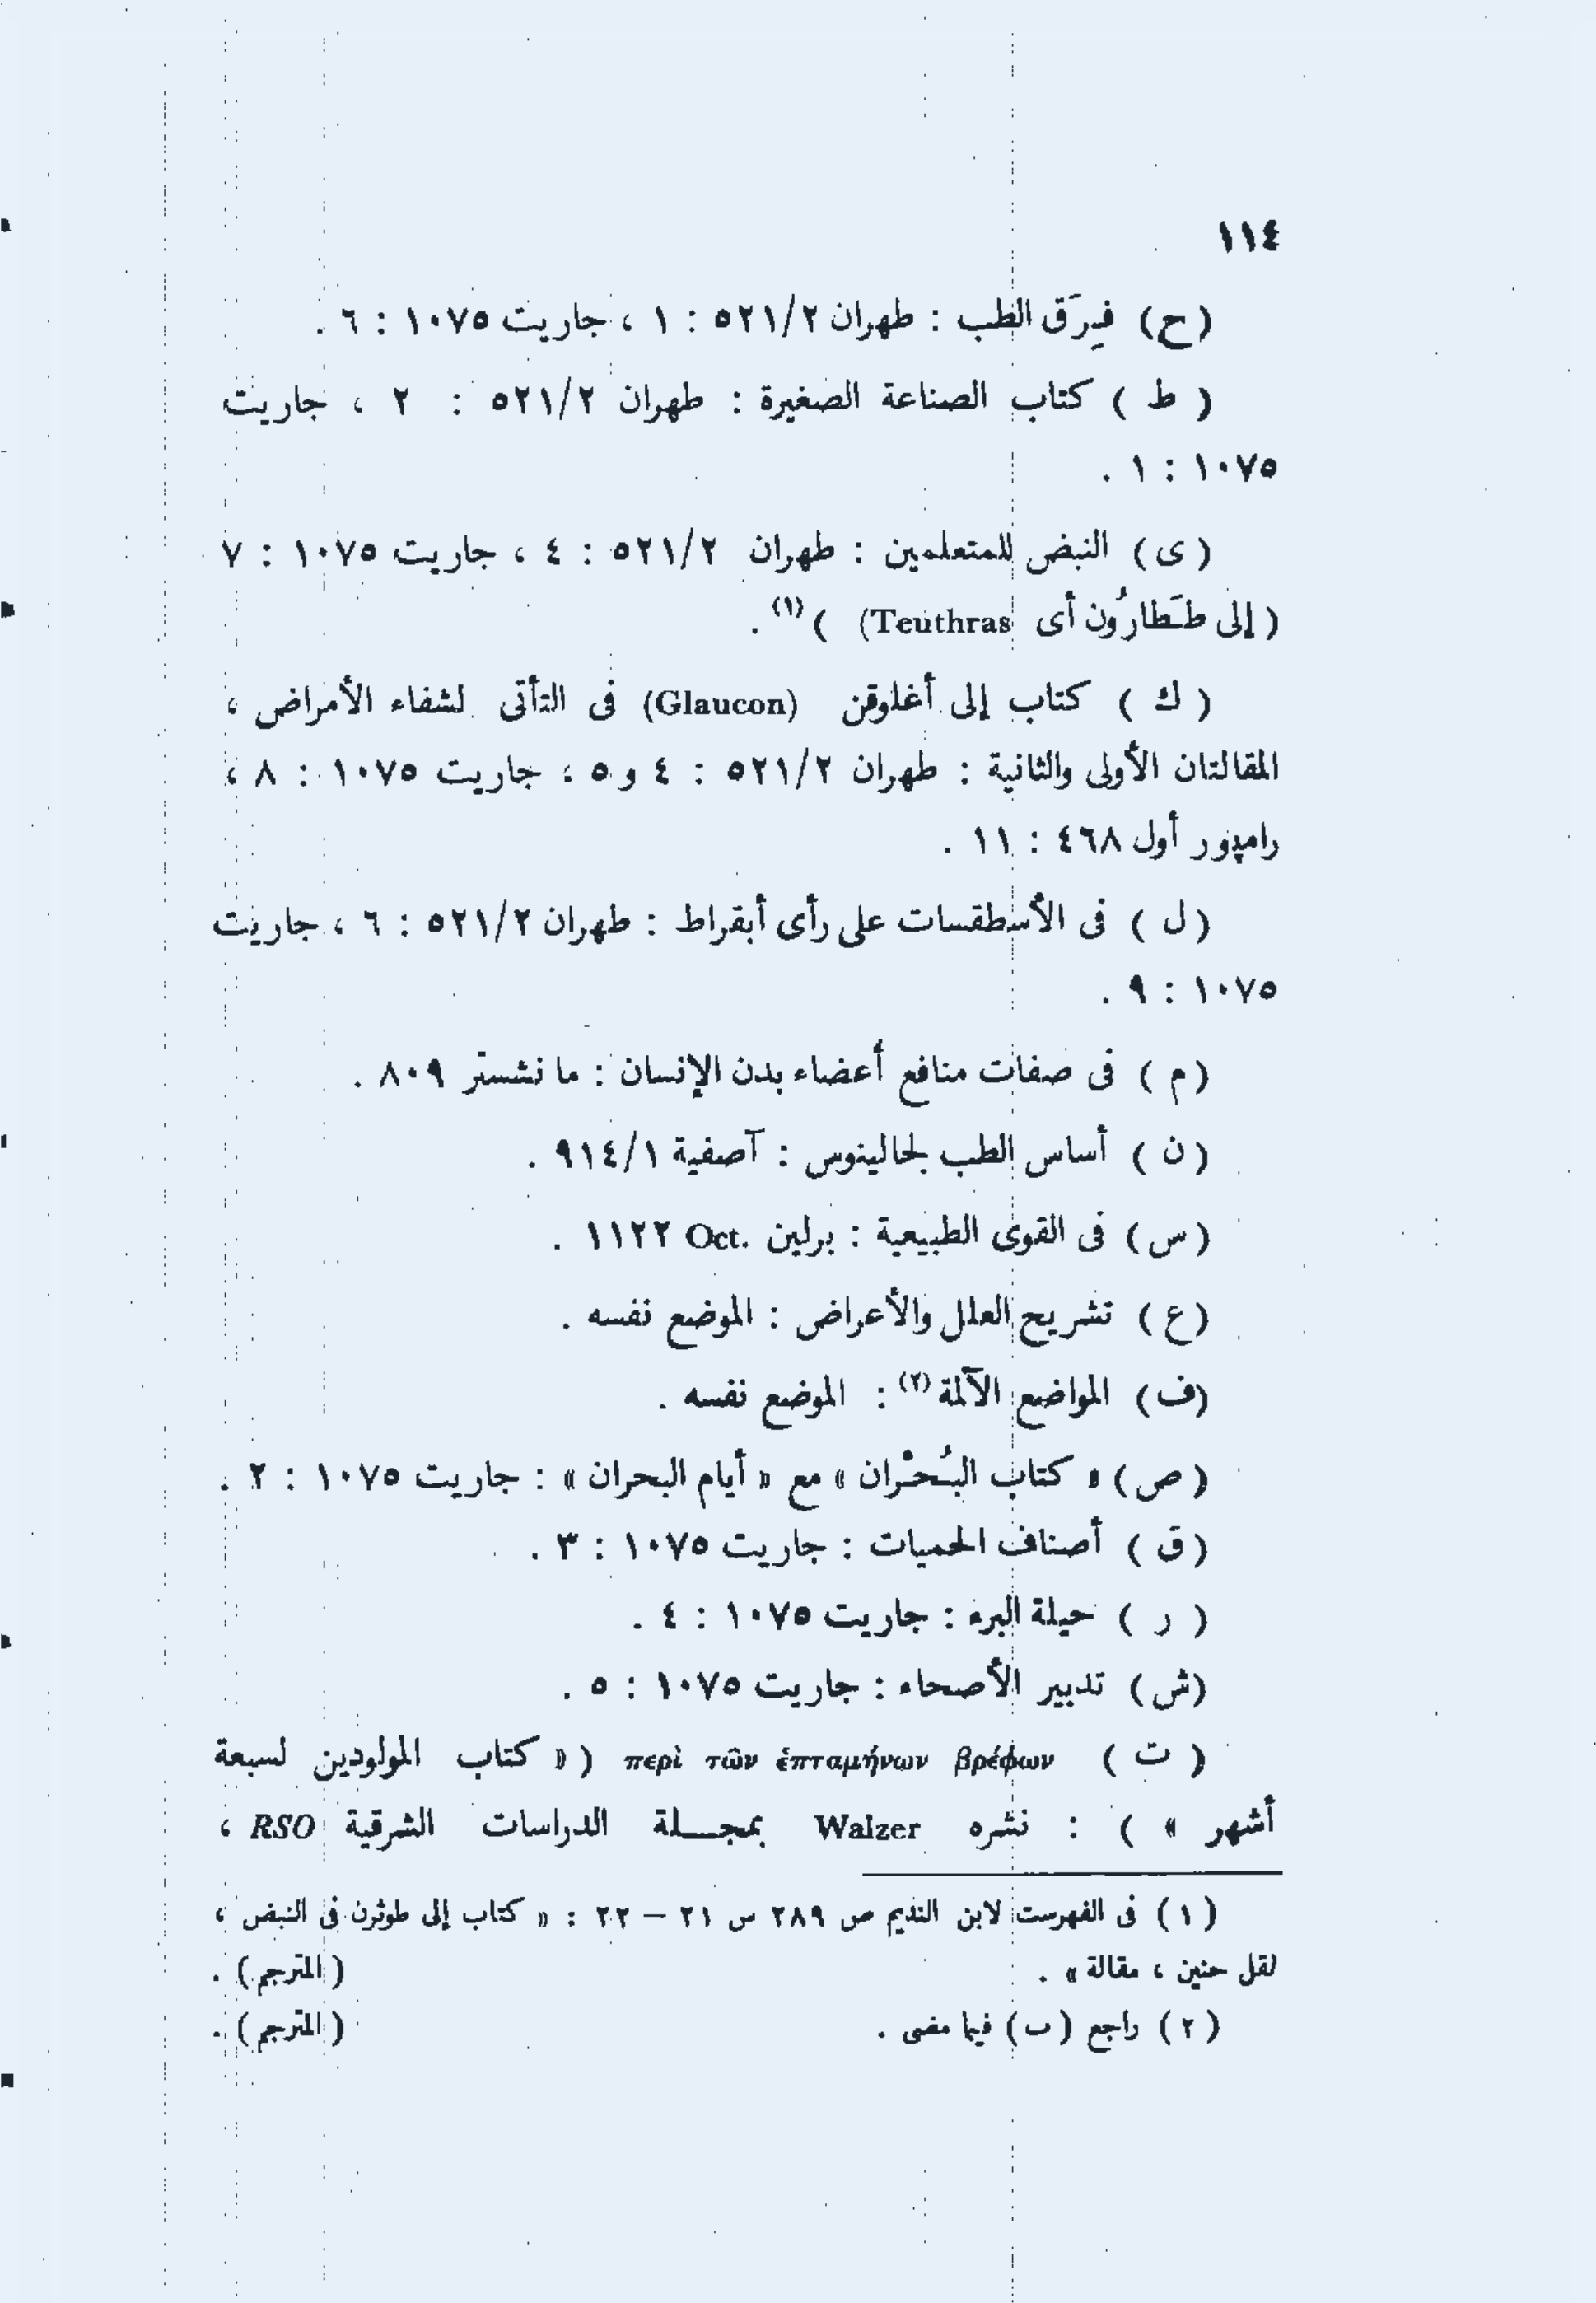 ١١٤
(ح) فِرَق الطب : طهران ٥٢١/٢ : ١ ، جاريت ١٠٧٥ : ٦ .
( ط ) كتاب الصناعة الصغيرة : طهران ٥٢١/٢ : ٢ ، جاريت
١٠٧٥ : ١ .
( ى ) النبض للمتعلمين : طهران ٥٢١/٢ : ٤ ، جاريت ١٠٧٥ : ٧
( إلى طَطارُون أى Teuthras) )(١) .
( ك ) كتاب إلى أغلوقن (Glaucon) فى التأتى لشفاء الأمراض ،
المقالتان الأولى والثانية : طهران ٥٢١/٢ : ٤ و ٥ ، جاريت ١٠٧٥ : ٨ ،
رامپور أول ٤٦٨ : ١١ .
( ل ) فى الأسطقسات على رأى أبقراط : طهران ٥٢١/٢ : ٦ ، جاريت
١٠٧٥ : ٩ .
( م ) فى صفات منافع أعضاء بدن الإنسان : ما نشستر ٨٠٩ .
( ن ) أساس الطب لجالينوس : آصفية ٩١٤/١ .
( س ) فى القوى الطبيعية : برلين Oct. ١١٢٢ .
( ع ) تشريح العلل والأعراض : الموضع نفسه .
(ف ) المواضع الآلمة(٢) : الموضع نفسه .
( ص ) « كتاب البُحْران » مع « أيام البحران » : جاريت ١٠٧٥ : ٢ .
( ق ) أصناف الحميات : جاريت ١٠٧٥ : ٣ .
( ر ) حيلة البرء : جاريت ١٠٧٥ : ٤ .
(ش ) تدبير الأصحاء : جاريت ١٠٧٥ : ٥ .
( ت ) περὶ τῶν ἑπταμήνων βρέφων ( « كتاب المولودين لسبعة
أشهر » ) : نشره Walzer بمجـــلة الدراسات الشرقية RSO ،
( ١ ) فى الفهرست لابن النديم ص ٢٨٩ س ٢١ – ٢٢ : « كتاب إلى طوثرن فى النبض ،
لقل حنين ، مقالة » . ( المترجم ) .
( ٢ ) راجع ( ب ) فيما مضى . ( المترجم ) .